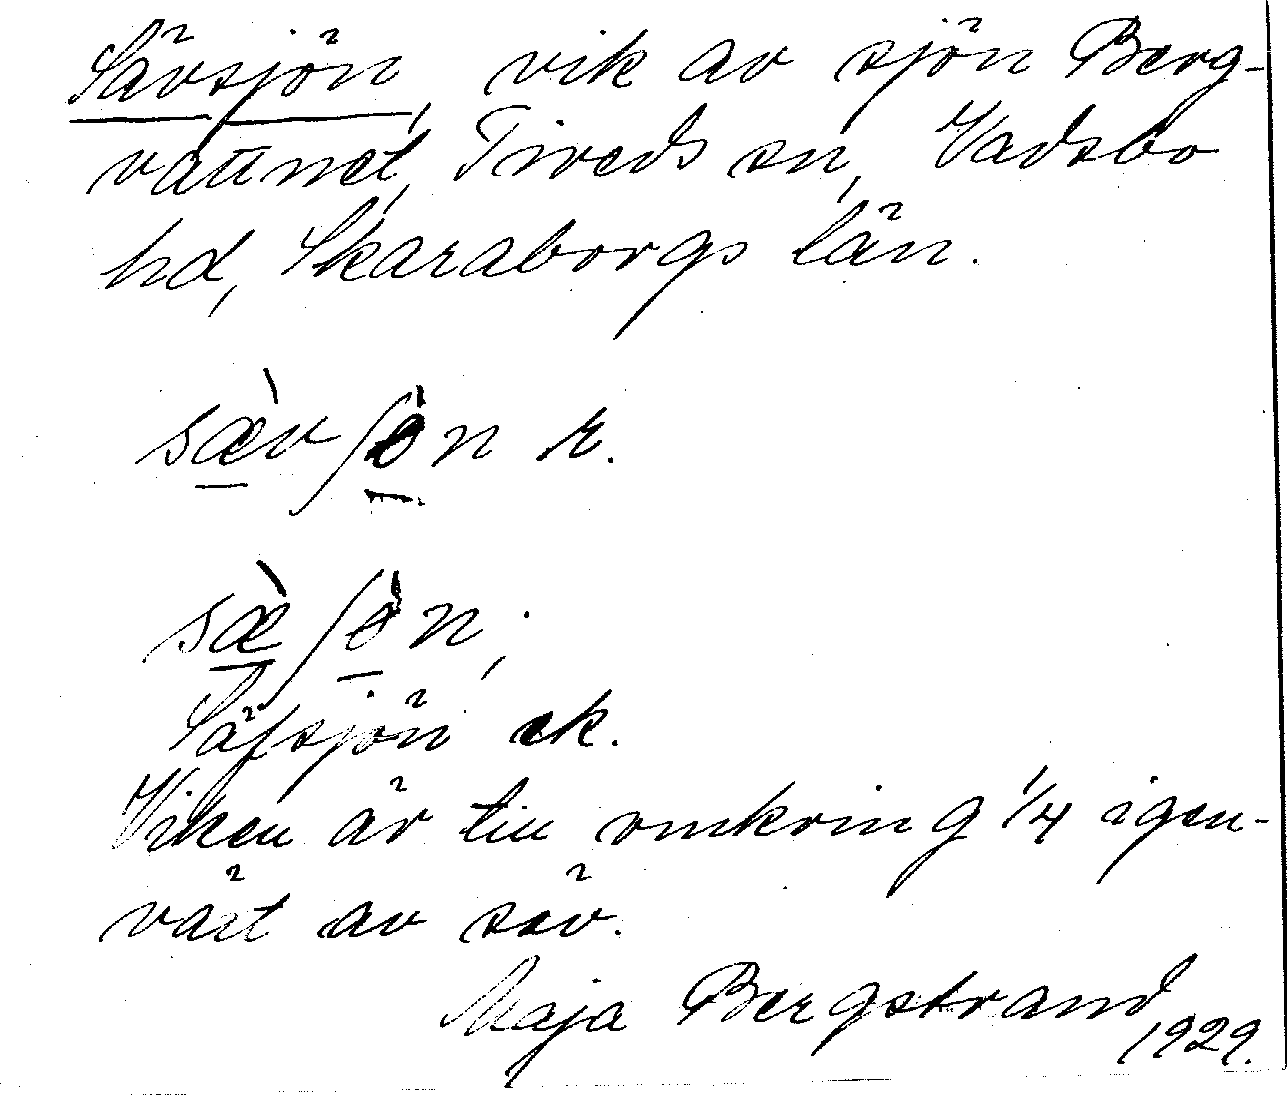 Sävsjön, vik av sjön Berg-
vattnet, Tiveds sn, Vadsbo
hd, Skaraborgs län.
sæ̀vʃөn r.
sæ̀ʃөn;
Säfsjön ek.
Viken är till omkring 1/4 igen-
växt av säv.
Maja Bergstrand
1929.